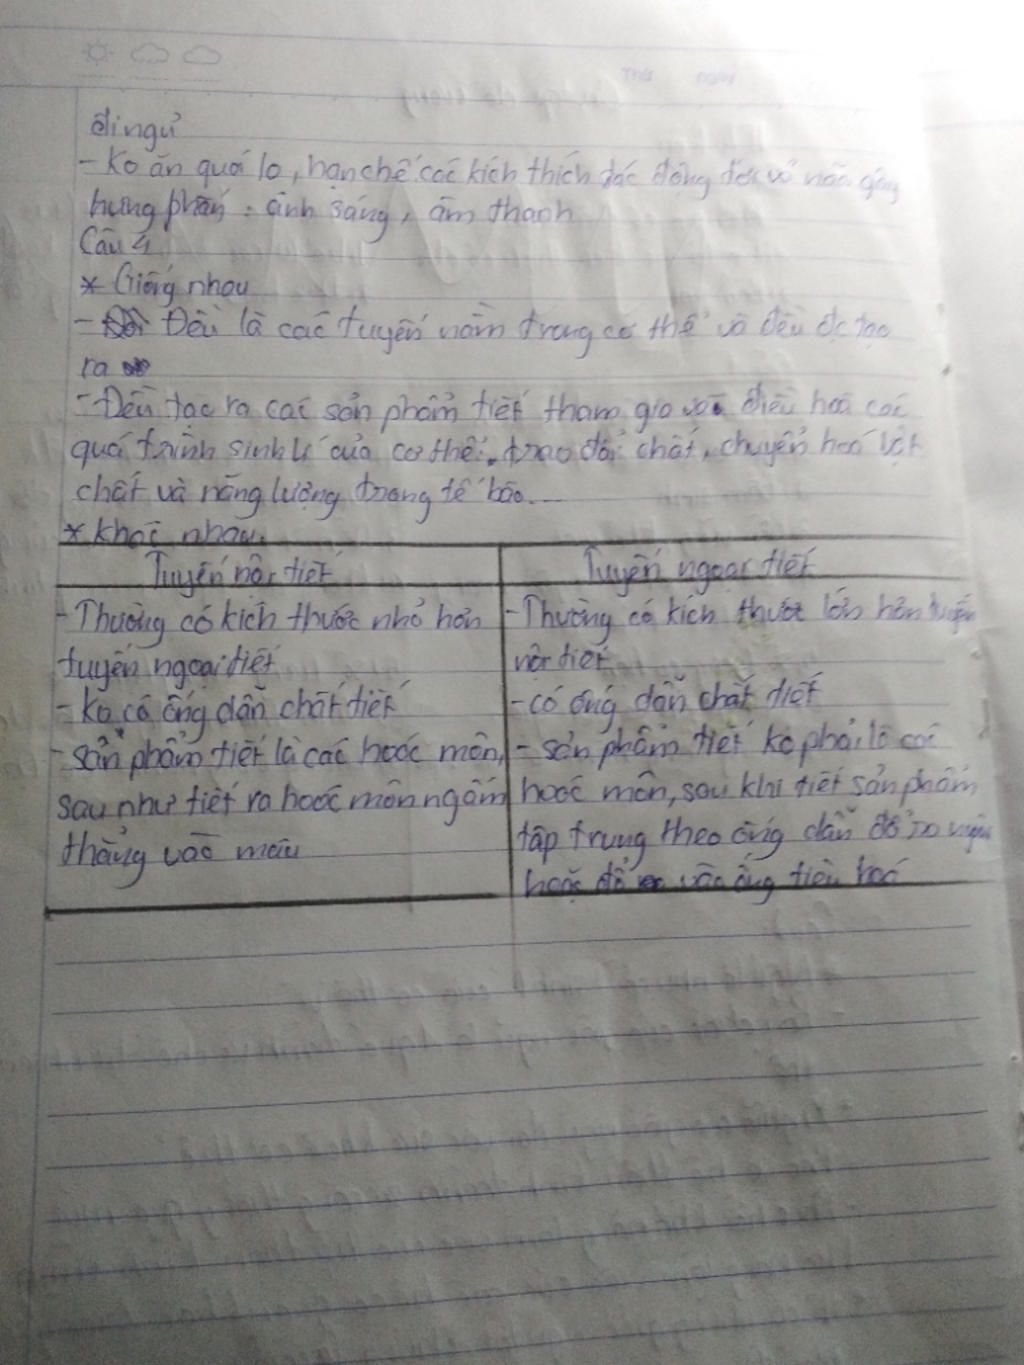 Thứ ngày
đi ngủ
- Ko ăn quá lo, hạn chế các kích thích tác động tới vỏ não gây
hưng phấn : ánh sáng, âm thanh
Câu 4
* Giống nhau
- Đều là các tuyến nằm trong cơ thể và đều đc tạo
ra
- Đều tạo ra các sản phẩm tiết tham gia vào điều hoà các
quá trình sinh lí của cơ thể: trao đổi chất, chuyển hoá vật
chất và năng lượng trong tế bào...
* Khác nhau.
Tuyến nội tiết
- Thường có kích thước nhỏ hơn
tuyến ngoại tiết
- Ko có ống dẫn chất tiết
- sản phẩm tiết là các hoóc môn,
sau như tiết ra hoóc môn ngấm
thẳng vào máu
Tuyến ngoại tiết
- Thường có kích thước lớn hơn tuyến
nội tiết
- có ống dẫn chất tiết
- sản phẩm tiết ko phải là các
hoóc môn, sau khi tiết sản phẩm
tập trung theo ống dẫn đổ ra
hoặc đổ vào ống tiêu hoá